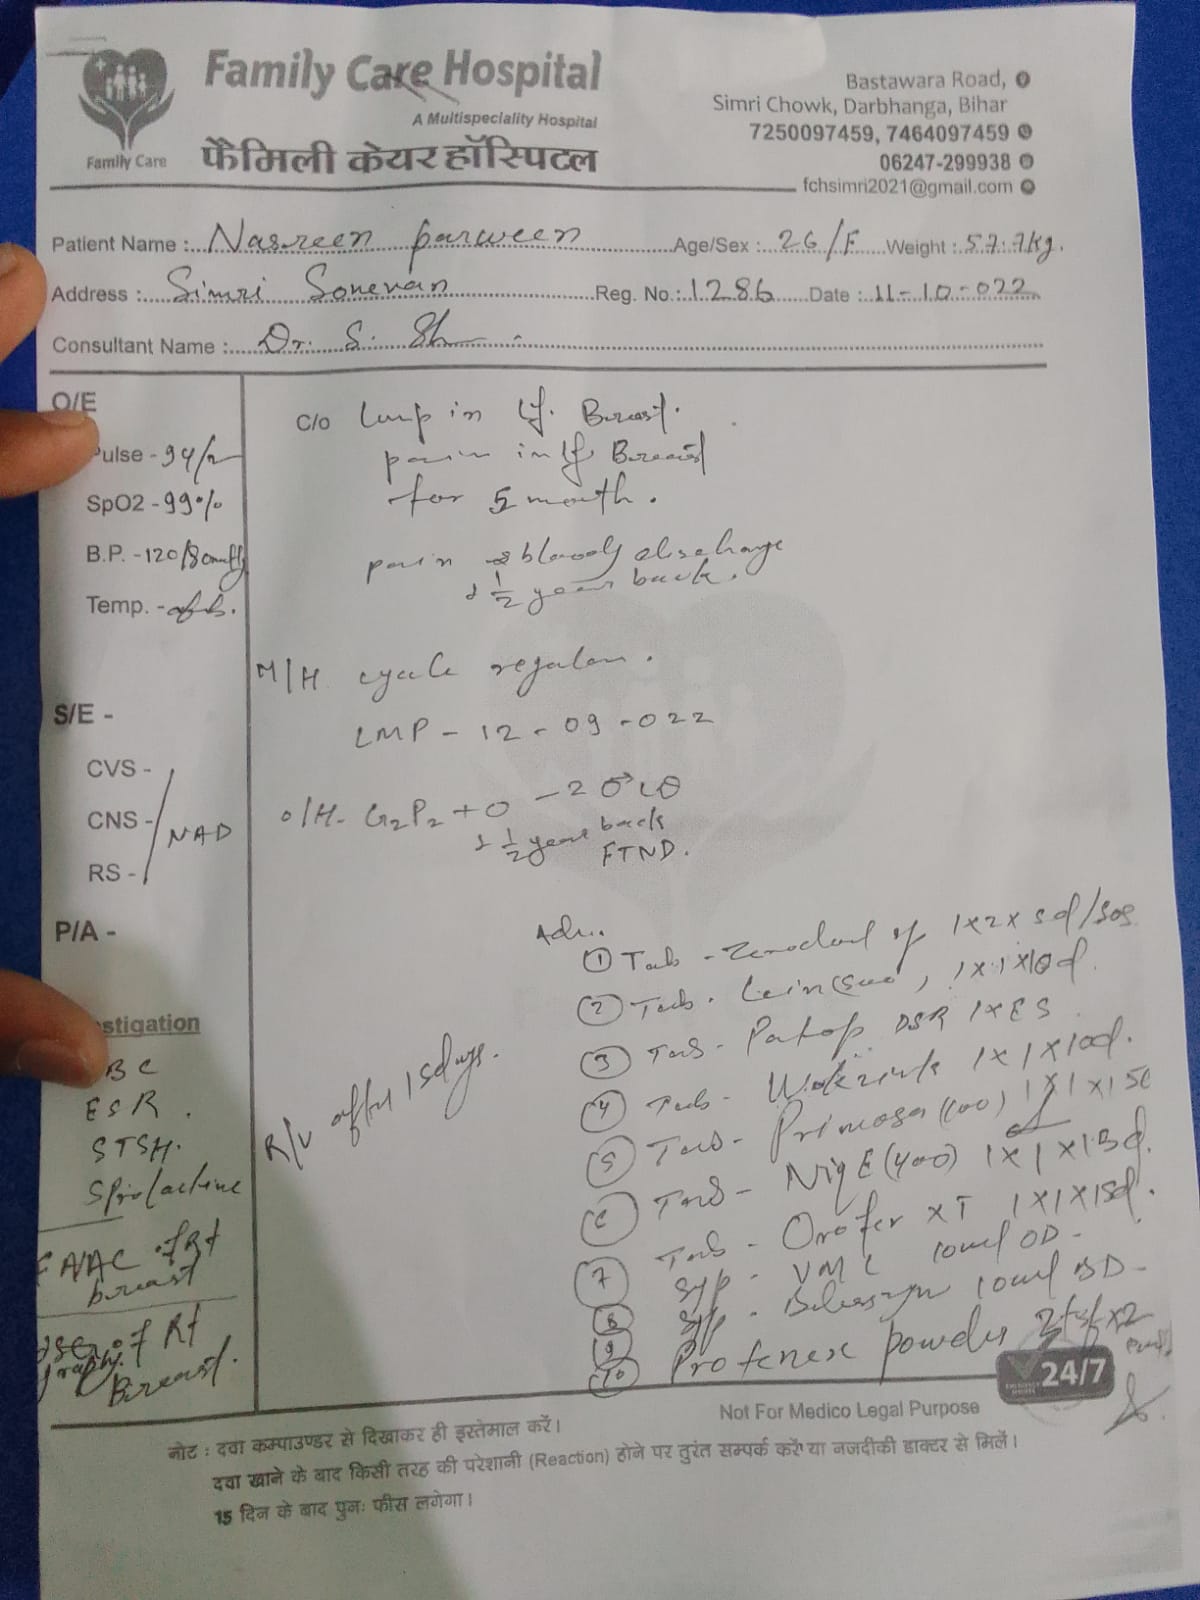 Family Care Hospital
A Multispeciality Hospital
फैमिली केयर हॉस्पिटल
Family Care
Bastawara Road,
Simri Chowk, Darbhanga, Bihar
7250097459, 7464097459
06247-299938
fchsimri2021@gmail.com
Patient Name :- Nasreen parween Age/Sex :- 26/F Weight :- 57.7kg.
Address :- Simri Reg. No.:- 1286 Date :- 11-10-022
Consultant Name :- Dr. S.
O/E
Pulse - 94/
SpO2 - 99%
B.P. - 120/80mmHg
Temp. -
S/E -
CVS -
CNS -
RS -
NAD
P/A -
stigation
BC
ESR.
STSH.
FNAC of Rt
breast
of Rt
Breast.
C/o Lump in Lf. Breast.
pain in Lf Breast
for 5 month.
pain & bloody discharge
1/2 year back.
M/H cycle regular.
LMP - 12-09-022
O/H- G2P2+0 - 2
1/2 year back
FTND.
R/v after 15days.
Adv..
① Tab - 1x2x5d/sos
② Tab. 1x1x10d.
③ Tab - DSR 1xES
④ Tab - 1x1x10d.
⑤ Tab - Primosa 1x1x15
⑥ Tab - NiqE(400) 1x1x13d.
⑦ Tab - Orofer XT 1x1x15d.
⑧ Syp - 10ml OD -
⑨ Syp - 10ml BD -
⑩ powder
24/7
Not For Medico Legal Purpose
नोट : दवा कम्पाउण्डर से दिखाकर ही इस्तेमाल करें।
दवा खाने के बाद किसी तरह की परेशानी (Reaction) होने पर तुरंत सम्पर्क करें या नजदीकी डाक्टर से मिलें।
15 दिन के बाद पुनः फीस लगेगा।